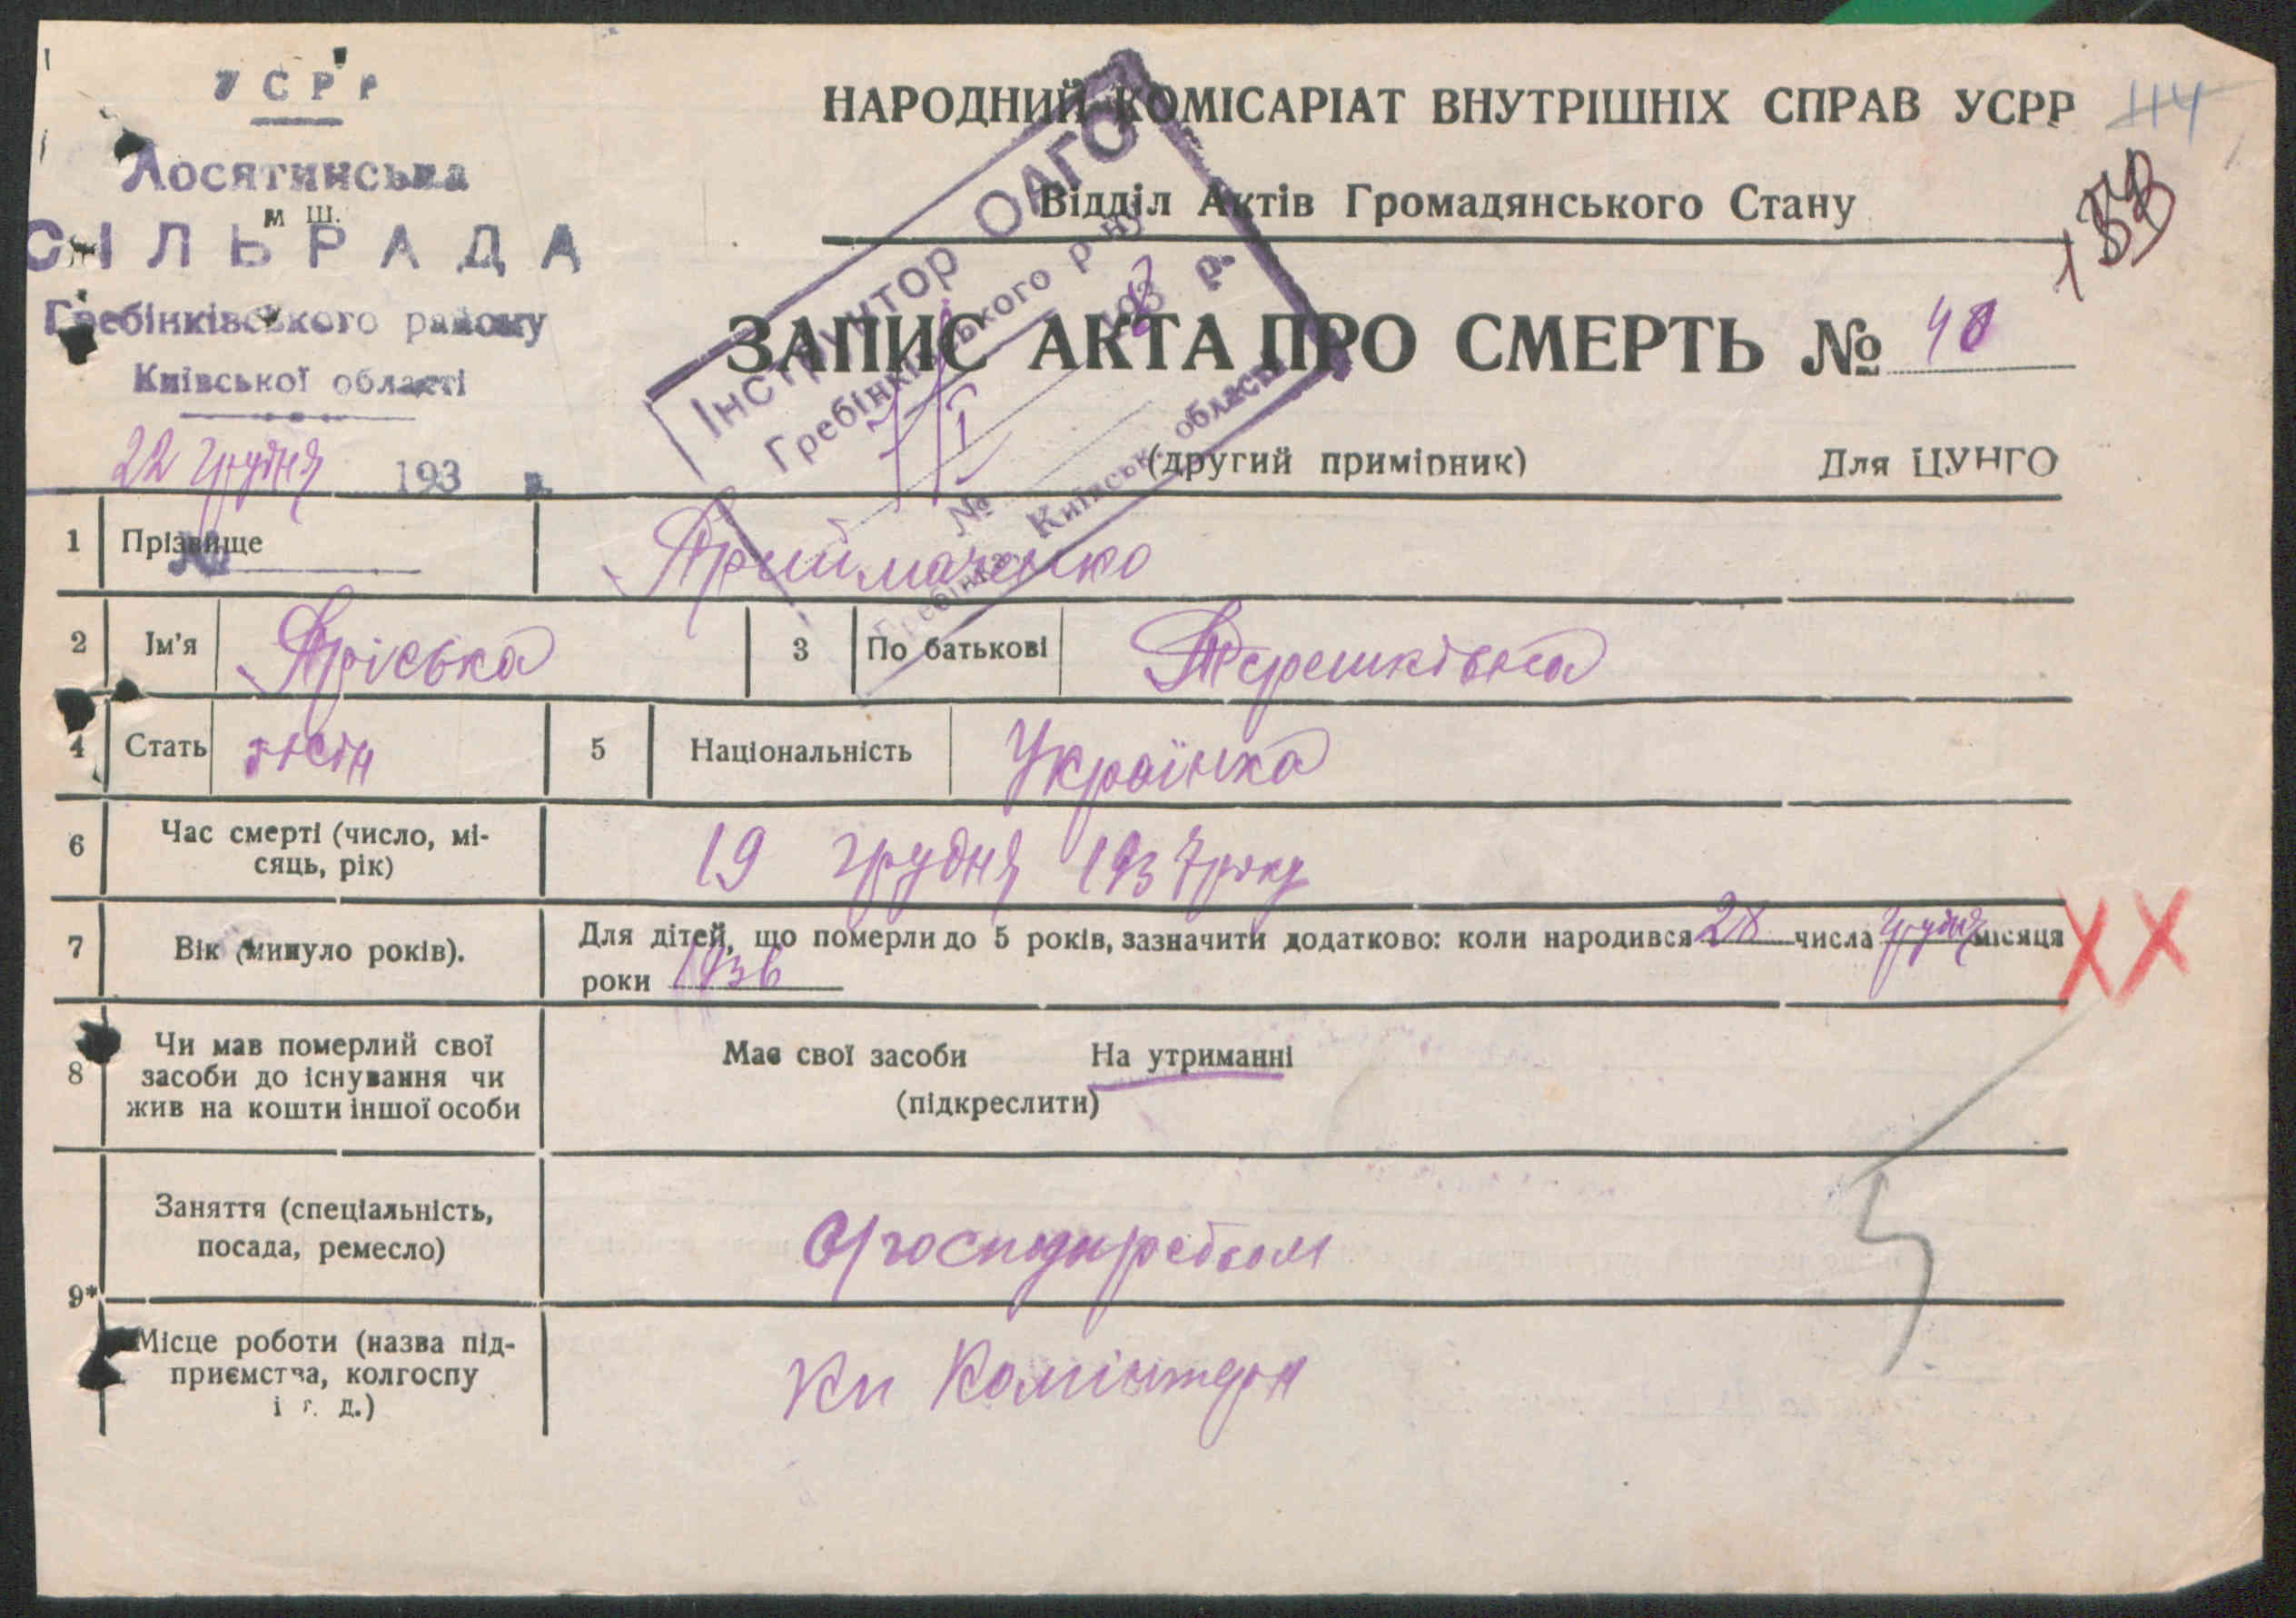 УСРР
Лосятинська
м ш.
СІЛЬРАДА
Гребінківського району
Київської області
22 грудня 193 р.
№
НАРОДНИЙ КОМІСАРІАТ ВНУТРІШНІХ СПРАВ УСРР
114
Відділ Актів Громадянського Стану
ЗАПИС АКТА ПРО СМЕРТЬ №
(другий примірник) Для ЦУНГО
Інструктор ОАГС
Гребінківського р-ну
193 р.
№
Київськ. області
1 Прізвище Приймаченко
2 Ім'я Пріська 3 По батькові Терешківна
4 Стать жін 5 Національність Українка
6 Час смерті (число, мі-
сяць, рік) 19 грудня 1937 року
7 Вік (минуло років). Для дітей, що померли до 5 років, зазначити додатково: коли народився 28 числа грудня місяця
роки 1936
8 Чи мав померлий свої
засоби до існування чи
жив на кошти іншої особи
Має свої засоби На утриманні
(підкреслити)
9*
Заняття (спеціальність,
посада, ремесло)
Місце роботи (назва під-
приємства, колгоспу
і т. д.)
Комінтерн